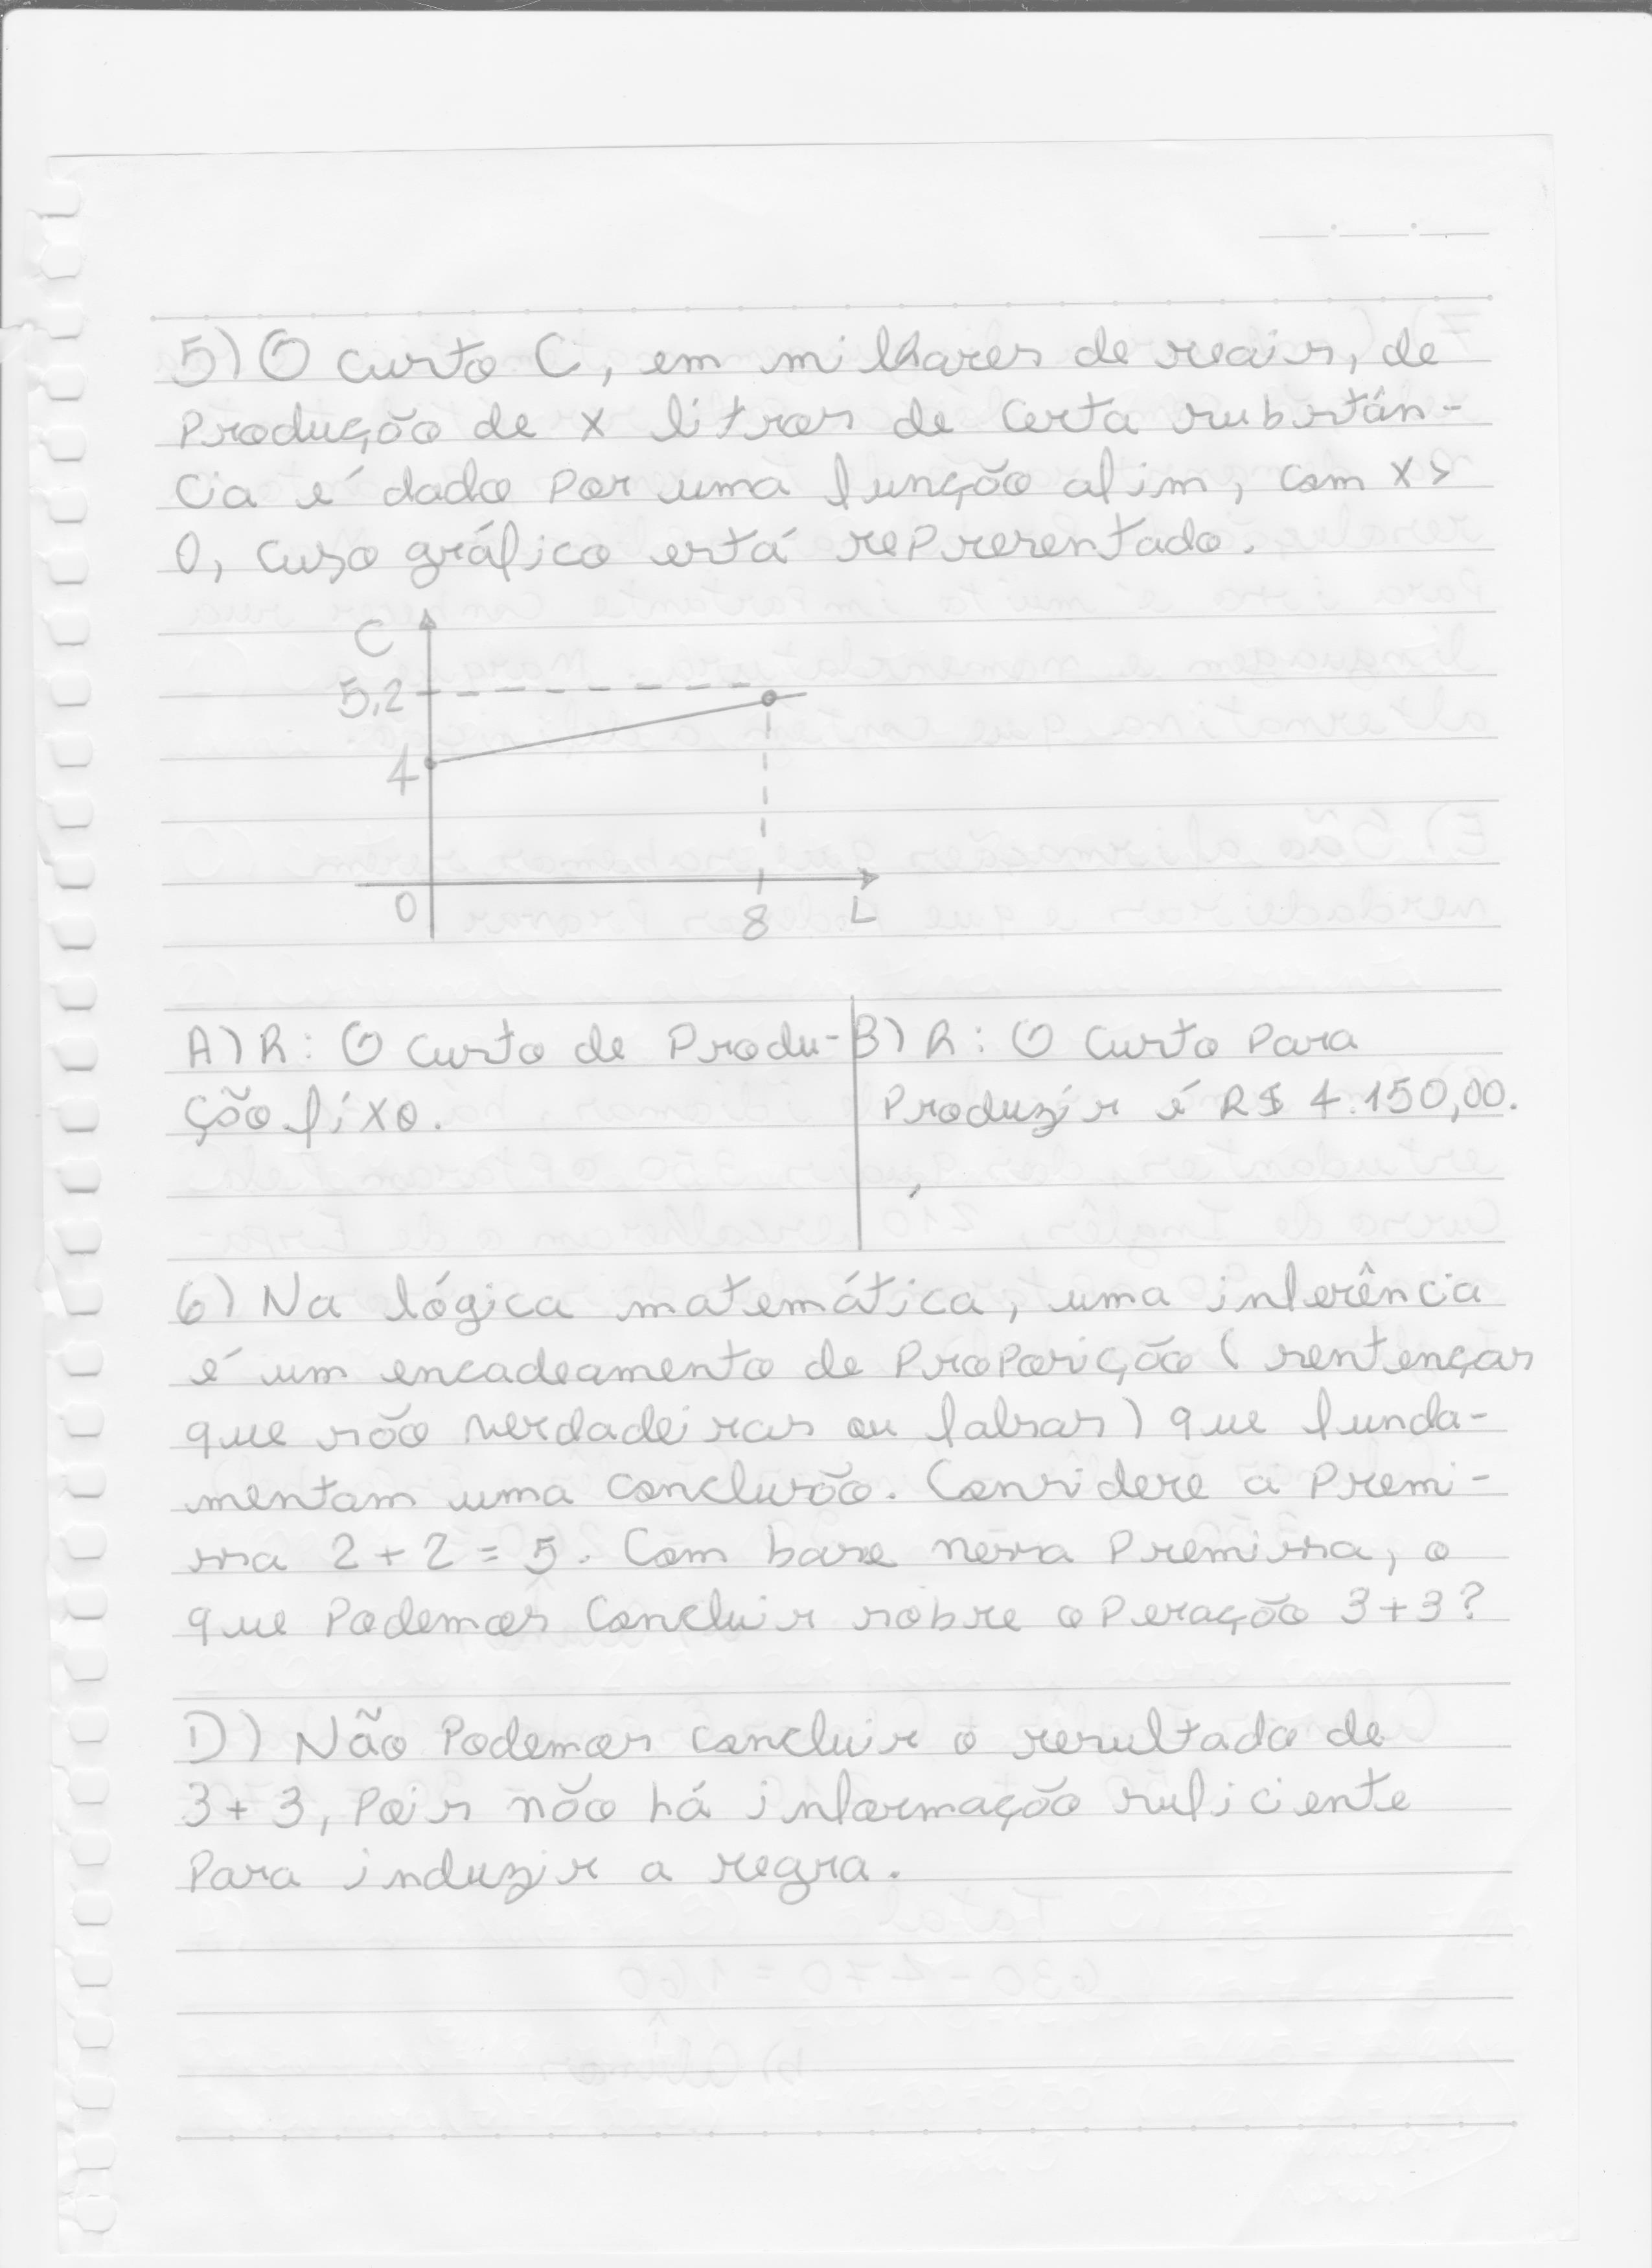 5) O custo C, em milhares de reais, de
Produção de x litros de certa substân-
cia é dado por uma função afim, com x >
0, cujo gráfico está representado.
C
5,2
4
0
8 L
A) R: O custo de Produ-
ção fixo.
B) R: O custo para
Produzir é R$ 4.150,00.
6) Na lógica matemática, uma inferência
é um encadeamento de Proposição (sentenças
que são verdadeiras ou falsas) que funda-
mentam uma conclusão. Considere a Premi-
ssa 2 + 2 = 5. Com base nessa Premissa, o
que Podemos concluir sobre operação 3+3?
D) Não Podemos concluir o resultado de
3 + 3, Pois não há informação suficiente
Para induzir a regra.